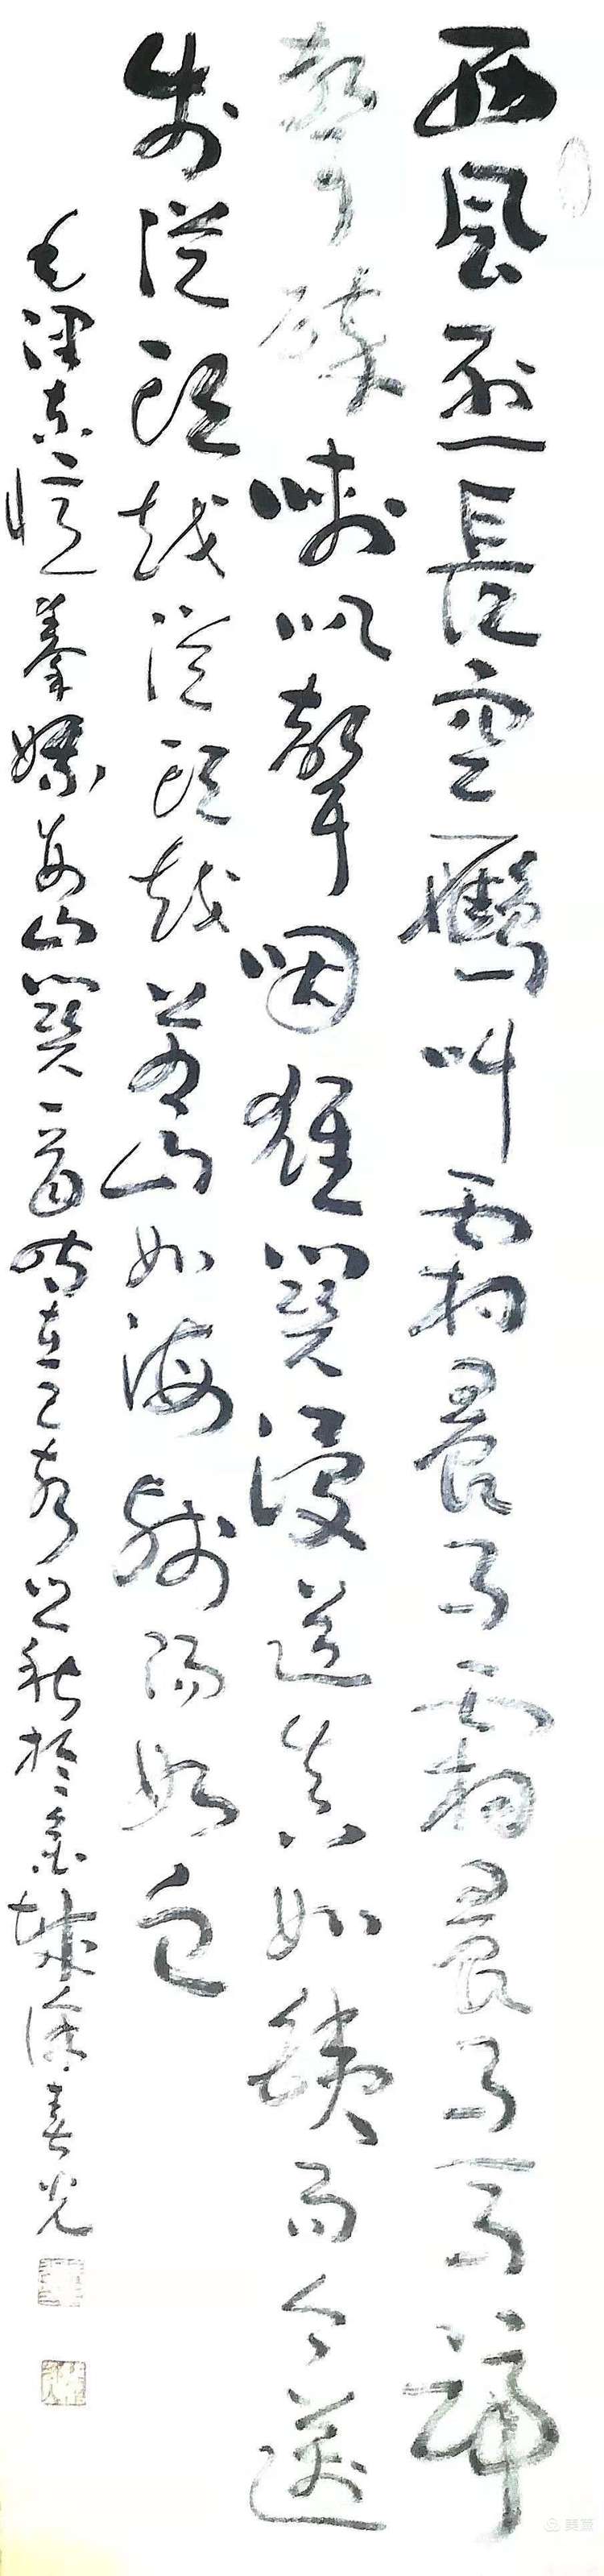 西風烈長空雁叫霜晨月霜晨月馬蹄
聲碎喇叭聲咽雄關漫道真如鐵而今邁
步從頭越從頭越蒼山如海殘陽如血
毛澤東憶秦娥婁山關一首時在己亥之秋於金城徐春光
美篇